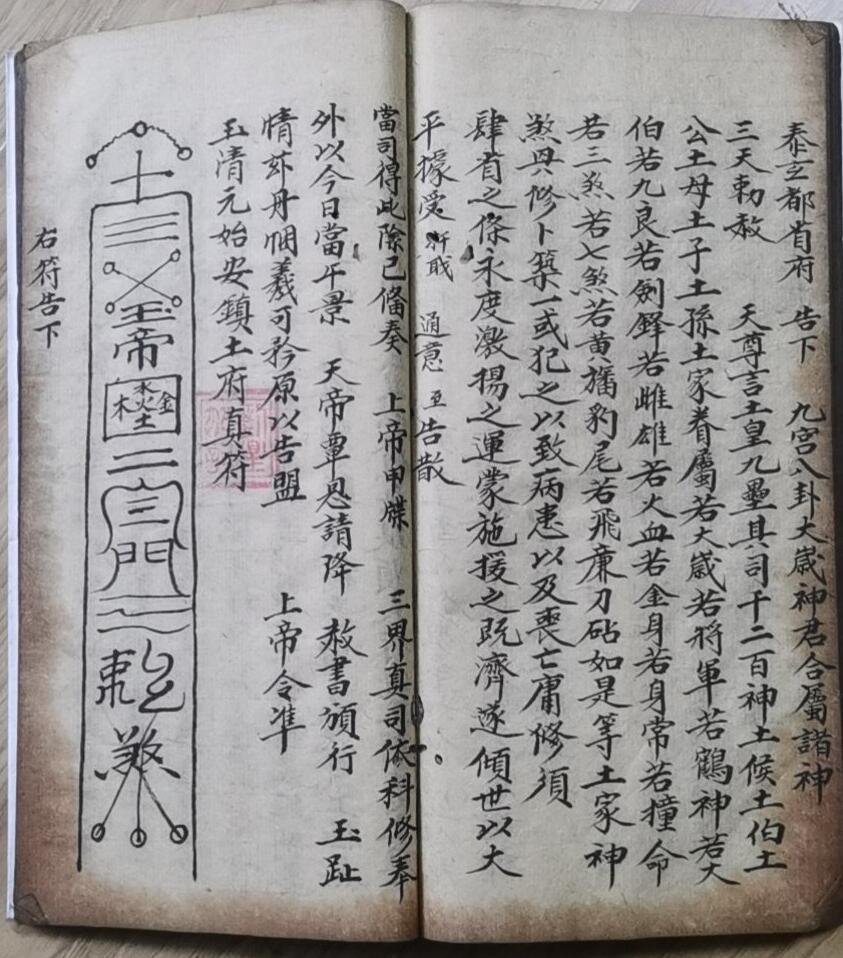 泰玄都省府 告下 九宮八卦大歲神君合屬諸神
三天勅赦 天尊言土皇九壘其司千二百神土候土伯土
公土母土子土孫土家眷屬若大歲若將軍若鶴神若大
伯若九良若劍鋒若雌雄若火血若金身若身常若撞命
若三煞若七煞若黄旛豹尾若飛廉刀砧如是等土家神
煞與修卜築一或犯之以致病患以及喪亡庸修須
肆省之條永度激揚之運蒙施援之既濟遂傾世以大
平據受 通意 至告散
當司得此除已俻奏 上帝申牒 三界真司依科修奉
外以今日當平景 天帝覃恩請降 赦書頒行 玉趾
情玆丹悃義可矜原以告盟 上帝令準
玉清元始安鎮土府真符
玉帝
金木水火土
門
勅
煞
右符告下